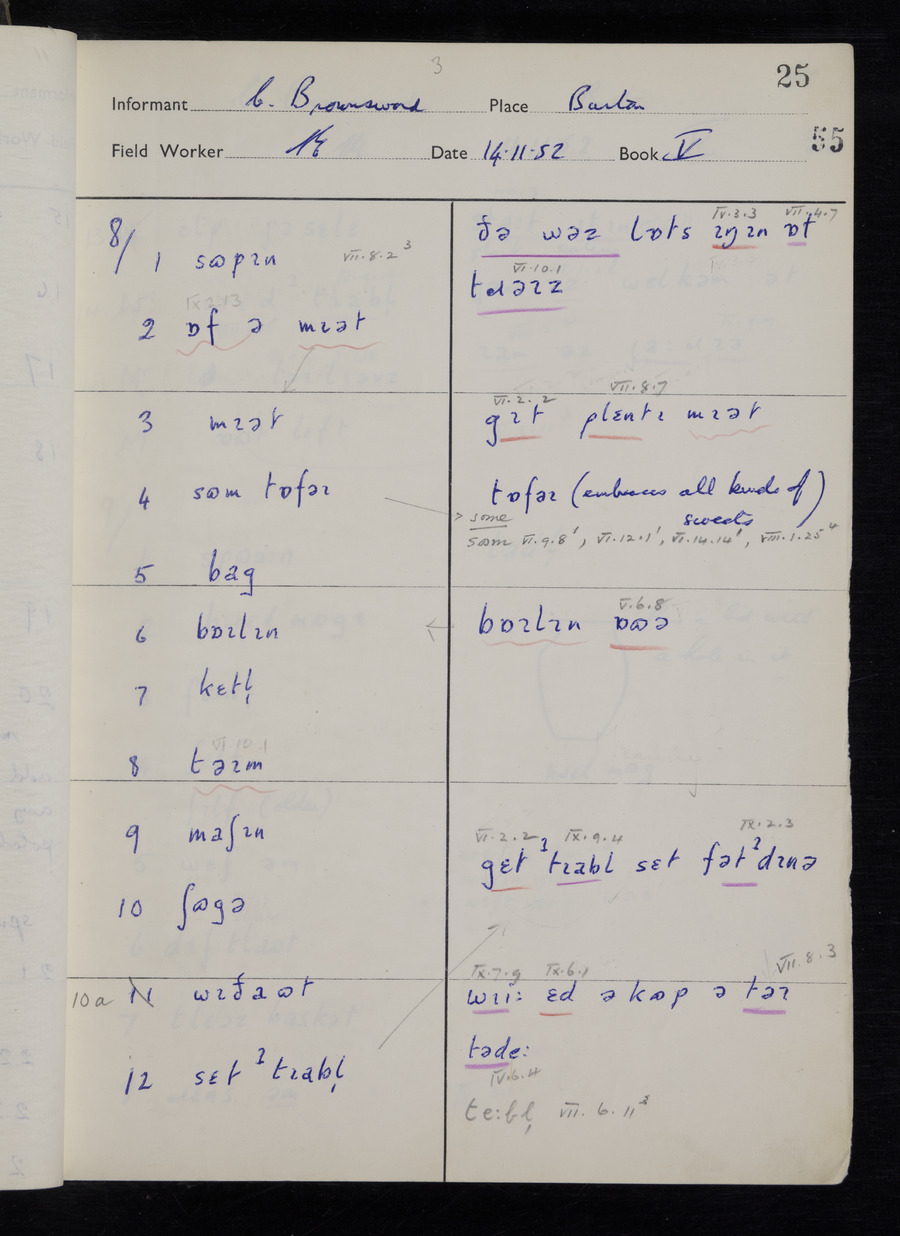 3
25
Informant C. Brownsword Place Barlaston
Field Worker Date 14.11.52 Book V
55
8/ 1 sɷpɪn VII.8.2³
IX.2.13
2 ɒf ə mɪət
3 mɪət
4 sɷm tɒfəɪ
5 bag
6 bɒɪlɪn
7 kɛtl̩
VI.10.1
8 təɪm
9 maʃɪn
10 ʃɷgə
10a 11 wɪðaɷt
12 sɛt ʔtɪabl̩
IV.3.3 VII.4.7
ðə wəz lɒts ɪŋɪn ɒt
VI.10.1
tɑəɪz
VI.2.2 VII.8.7
gɪt plɛntɪ mɪət
tɒfəɪ (embraces all kinds of)
sweets
some
sɷm VI.9.8¹, VI.12.1¹, VI.14.14¹, VIII.1.25⁴
V.6.8
bɒɪlɪn ɒɷə
VI.2.2 IX.9.4 IX.2.3
gɛt ʔtɪabl sɛt fətʔdɪnə
IX.7.9 IX.6.1 VII.8.3
wɪi: ɛd ə kɷp ə təɪ
təde:
IV.6.4
te:bl̩ VII.6.11²